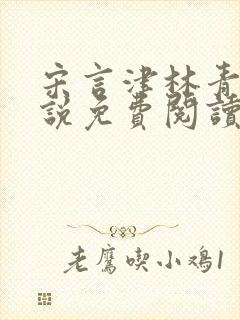 宋言津林青
說免費閱讀
老鷹喫小鸡1